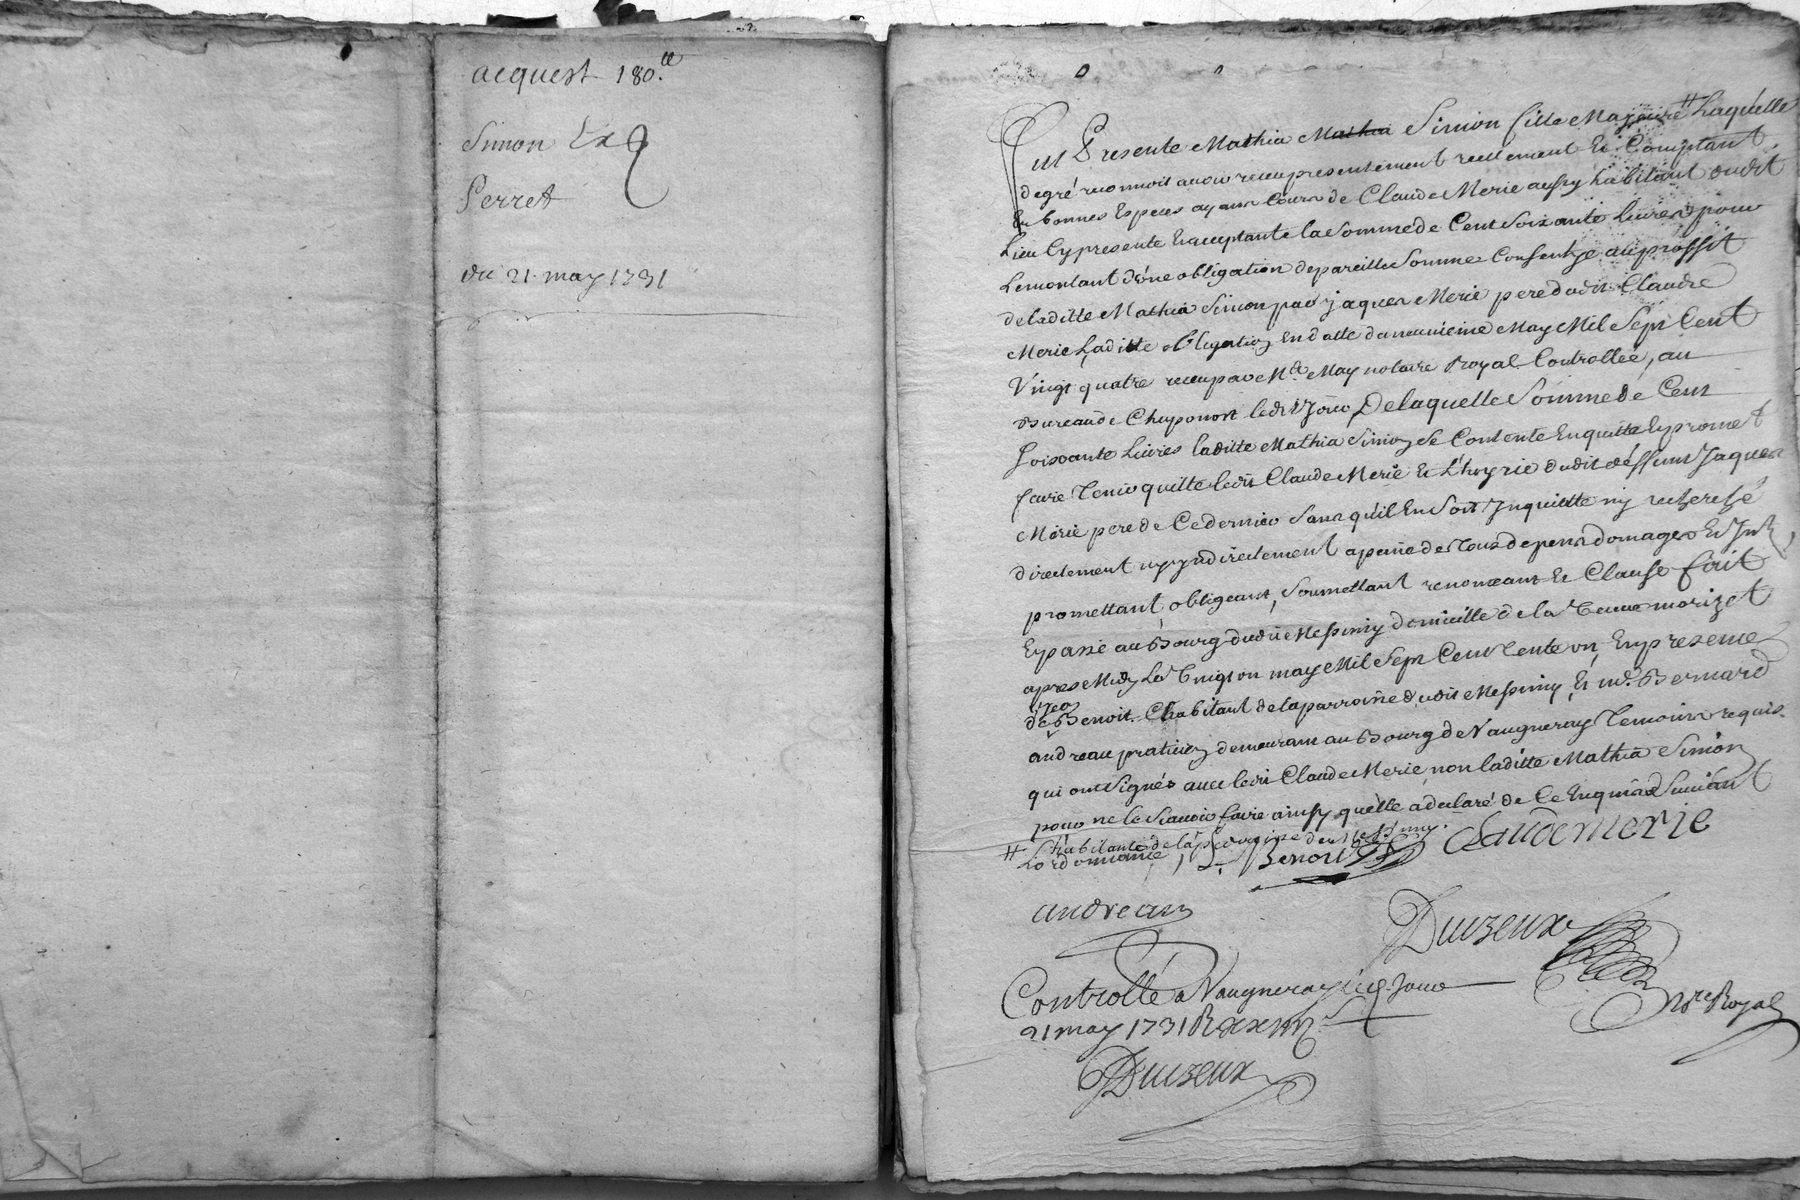 acquest 180.tt
Simon Et
Perret
du 21 may 1731
Fut Presente Mathia Mathia Simon fille Majeure # Laquelle
degré reconnoit avoir receu presentement reellement Et Comptant
En bonnes Especes ayans Cours de Claude Merie aussy habitant dudit
Lieu Cy presente Et acceptante la Somme de Cent Soixante Livres pour
Le montant d'une obligation de pareille Somme Consentye au proffit
de laditte Mathia Simon par jaques Merie pere dudit Claude
Merie, Laditte obligation En datte du neuvieme May Mil Sept Cent
Vingt quatre receu par Me. May notaire Royal Controllée, au
Bureau de Chaponost ledit Jour, De laquelle Somme de Cent
Soixante Livres laditte Mathia Simon Se Contente En quitte Et promet
faire Tenir quitte ledit Claude Merie Et L'hoyrie dudit deffunt Jaques
Merie pere de Ce dernier Sans qu'il En Soit Inquietté ny recherché
directement ny Indirectement a peine de Tous depens domages Et Int.
promettant obligeant, Soumettant renonceant Et Clause fait
Et passé au Bourg dudit Messimy domicille de la Veuve morizot
apres Midy Le Vingt un may Mil Sept Cent Trente un, En presence
de Benoit habitant de la parroisse dudit Messimy, Et Me. Bernard
andreau praticien demeurant au Bourg de Vaugneray Temoins requis
qui ont Signés avec ledit Claude Merie non laditte Mathia Simon
pour ne le Scavoir faire ainsy qu'elle a declaré de Ce Enquis Suivant
# habitante de la parroisse de Messimy.
Lordonnance
Benoit
Claude merie
andreau
Duizeux
Nre Royal
Controllé a Vaugneray Led. Jour
21 may 1731 R
Duizeux